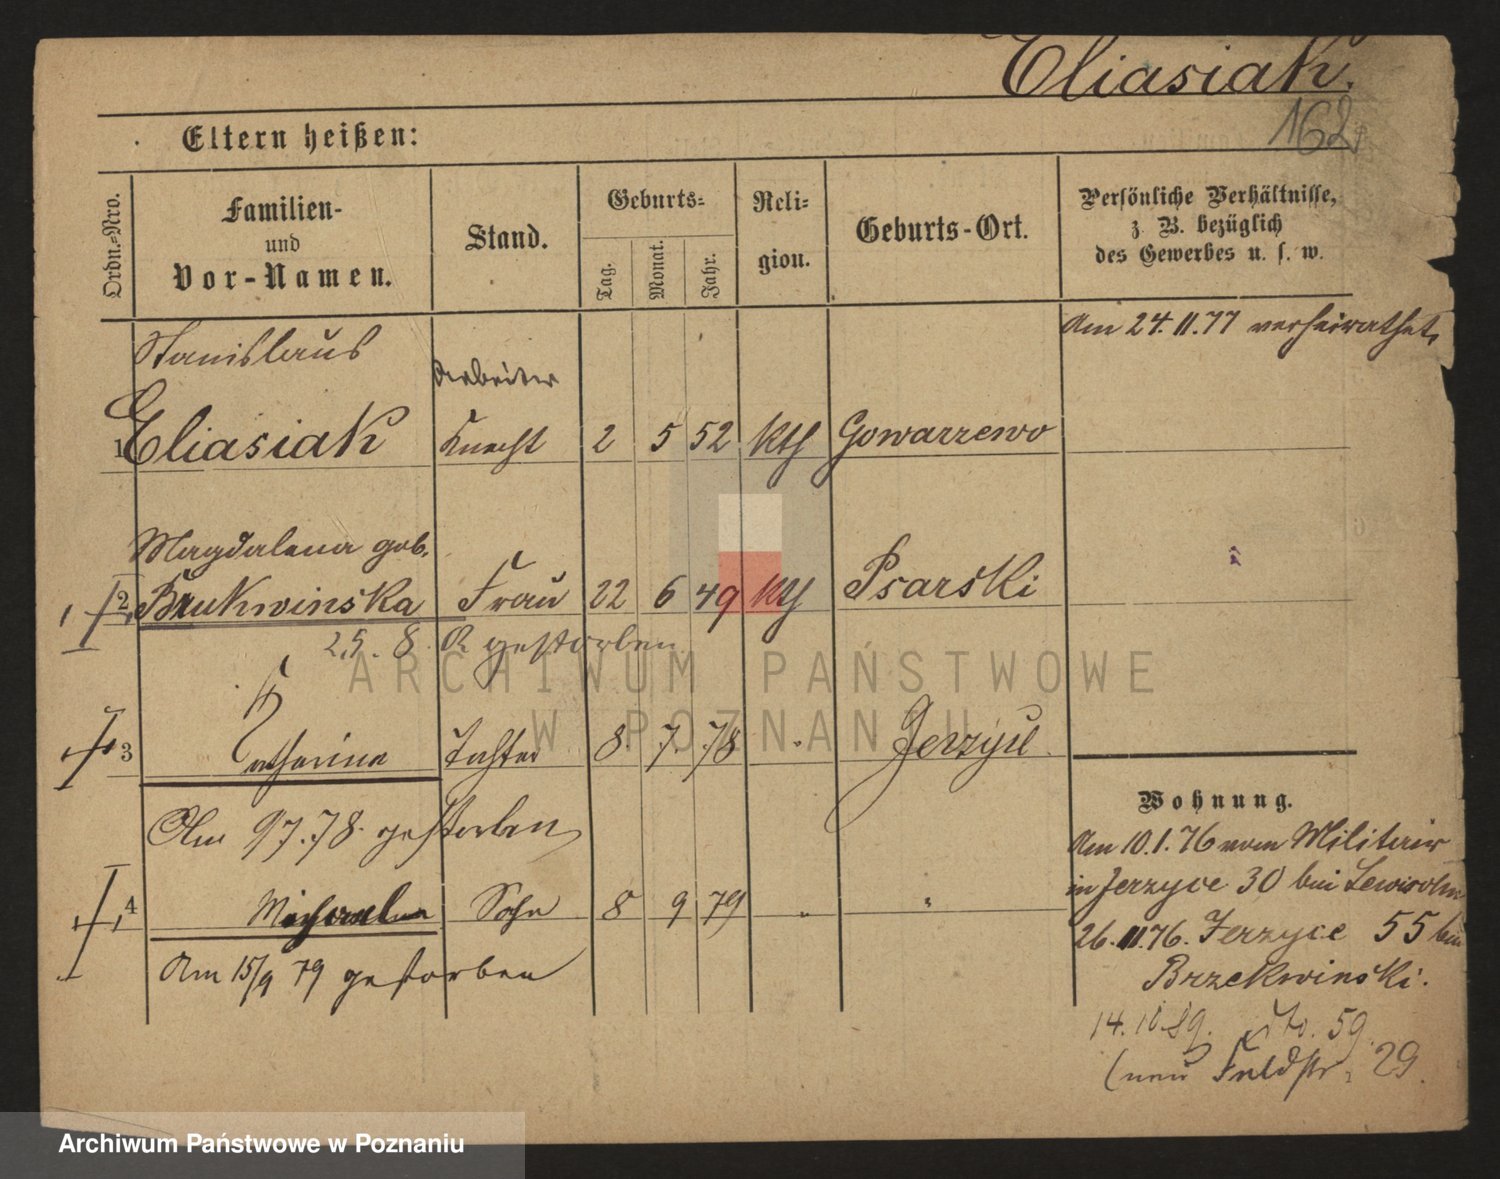 Eliasiak.
162
Eltern heißen:
Ordn.=Nro.
Familien-
und
Vor-Namen.
Stand.
Geburts=
Tag.
Monat.
Jahr.
Reli=
gion.
Geburts-Ort.
Persönliche Verhältnisse,
z. B. bezüglich
des Gewerbes u. s. w.
Am 24.11.77 verheirathet.
Stanislaus
Arbeiter
1 Eliasiak Knecht 2 5 52 Kth Gowarzewo
Magdalena geb.
2 Brukwinska Frau 22 6 49 Kth Psarski
25. 8. gestorben
3 Catharina Tochter 8. 7. 78 " Jerzyce
Am 9 7.78. gestorben
4 Sohn 8 9 79 " "
Am 15/9 79 gestorben
Wohnung.
Am 10.1.76 vom Militair
in Jerzyce 30 bei
26.11.76. Jerzyce 55 bei
Brzekwinski.
14.10.89. 59
(neu Feldstr. 29.
ARCHIWUM PAŃSTWOWE
W POZNANIU
Archiwum Państwowe w Poznaniu